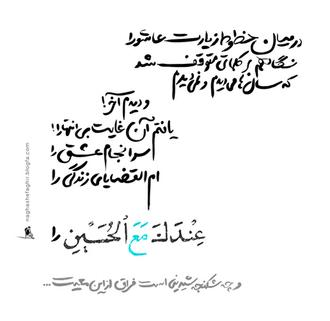 در میان خطوط از زیارت عاشورا
نگاهم بر کلماتی متوقف شد
که سال‌ها می‌دیدم و نمی‌دیدم
و دیدم آخر!
یافتم آن غایت بی‌انتها را!
سرانجام عشق را
ام القضایای زندگی را
عِنْدَكَ مَعَ الْحُسَيْنِ را
و چه شکنجه شیرینی است فراق از این معیت...
naghashefaghir.blogfa.com